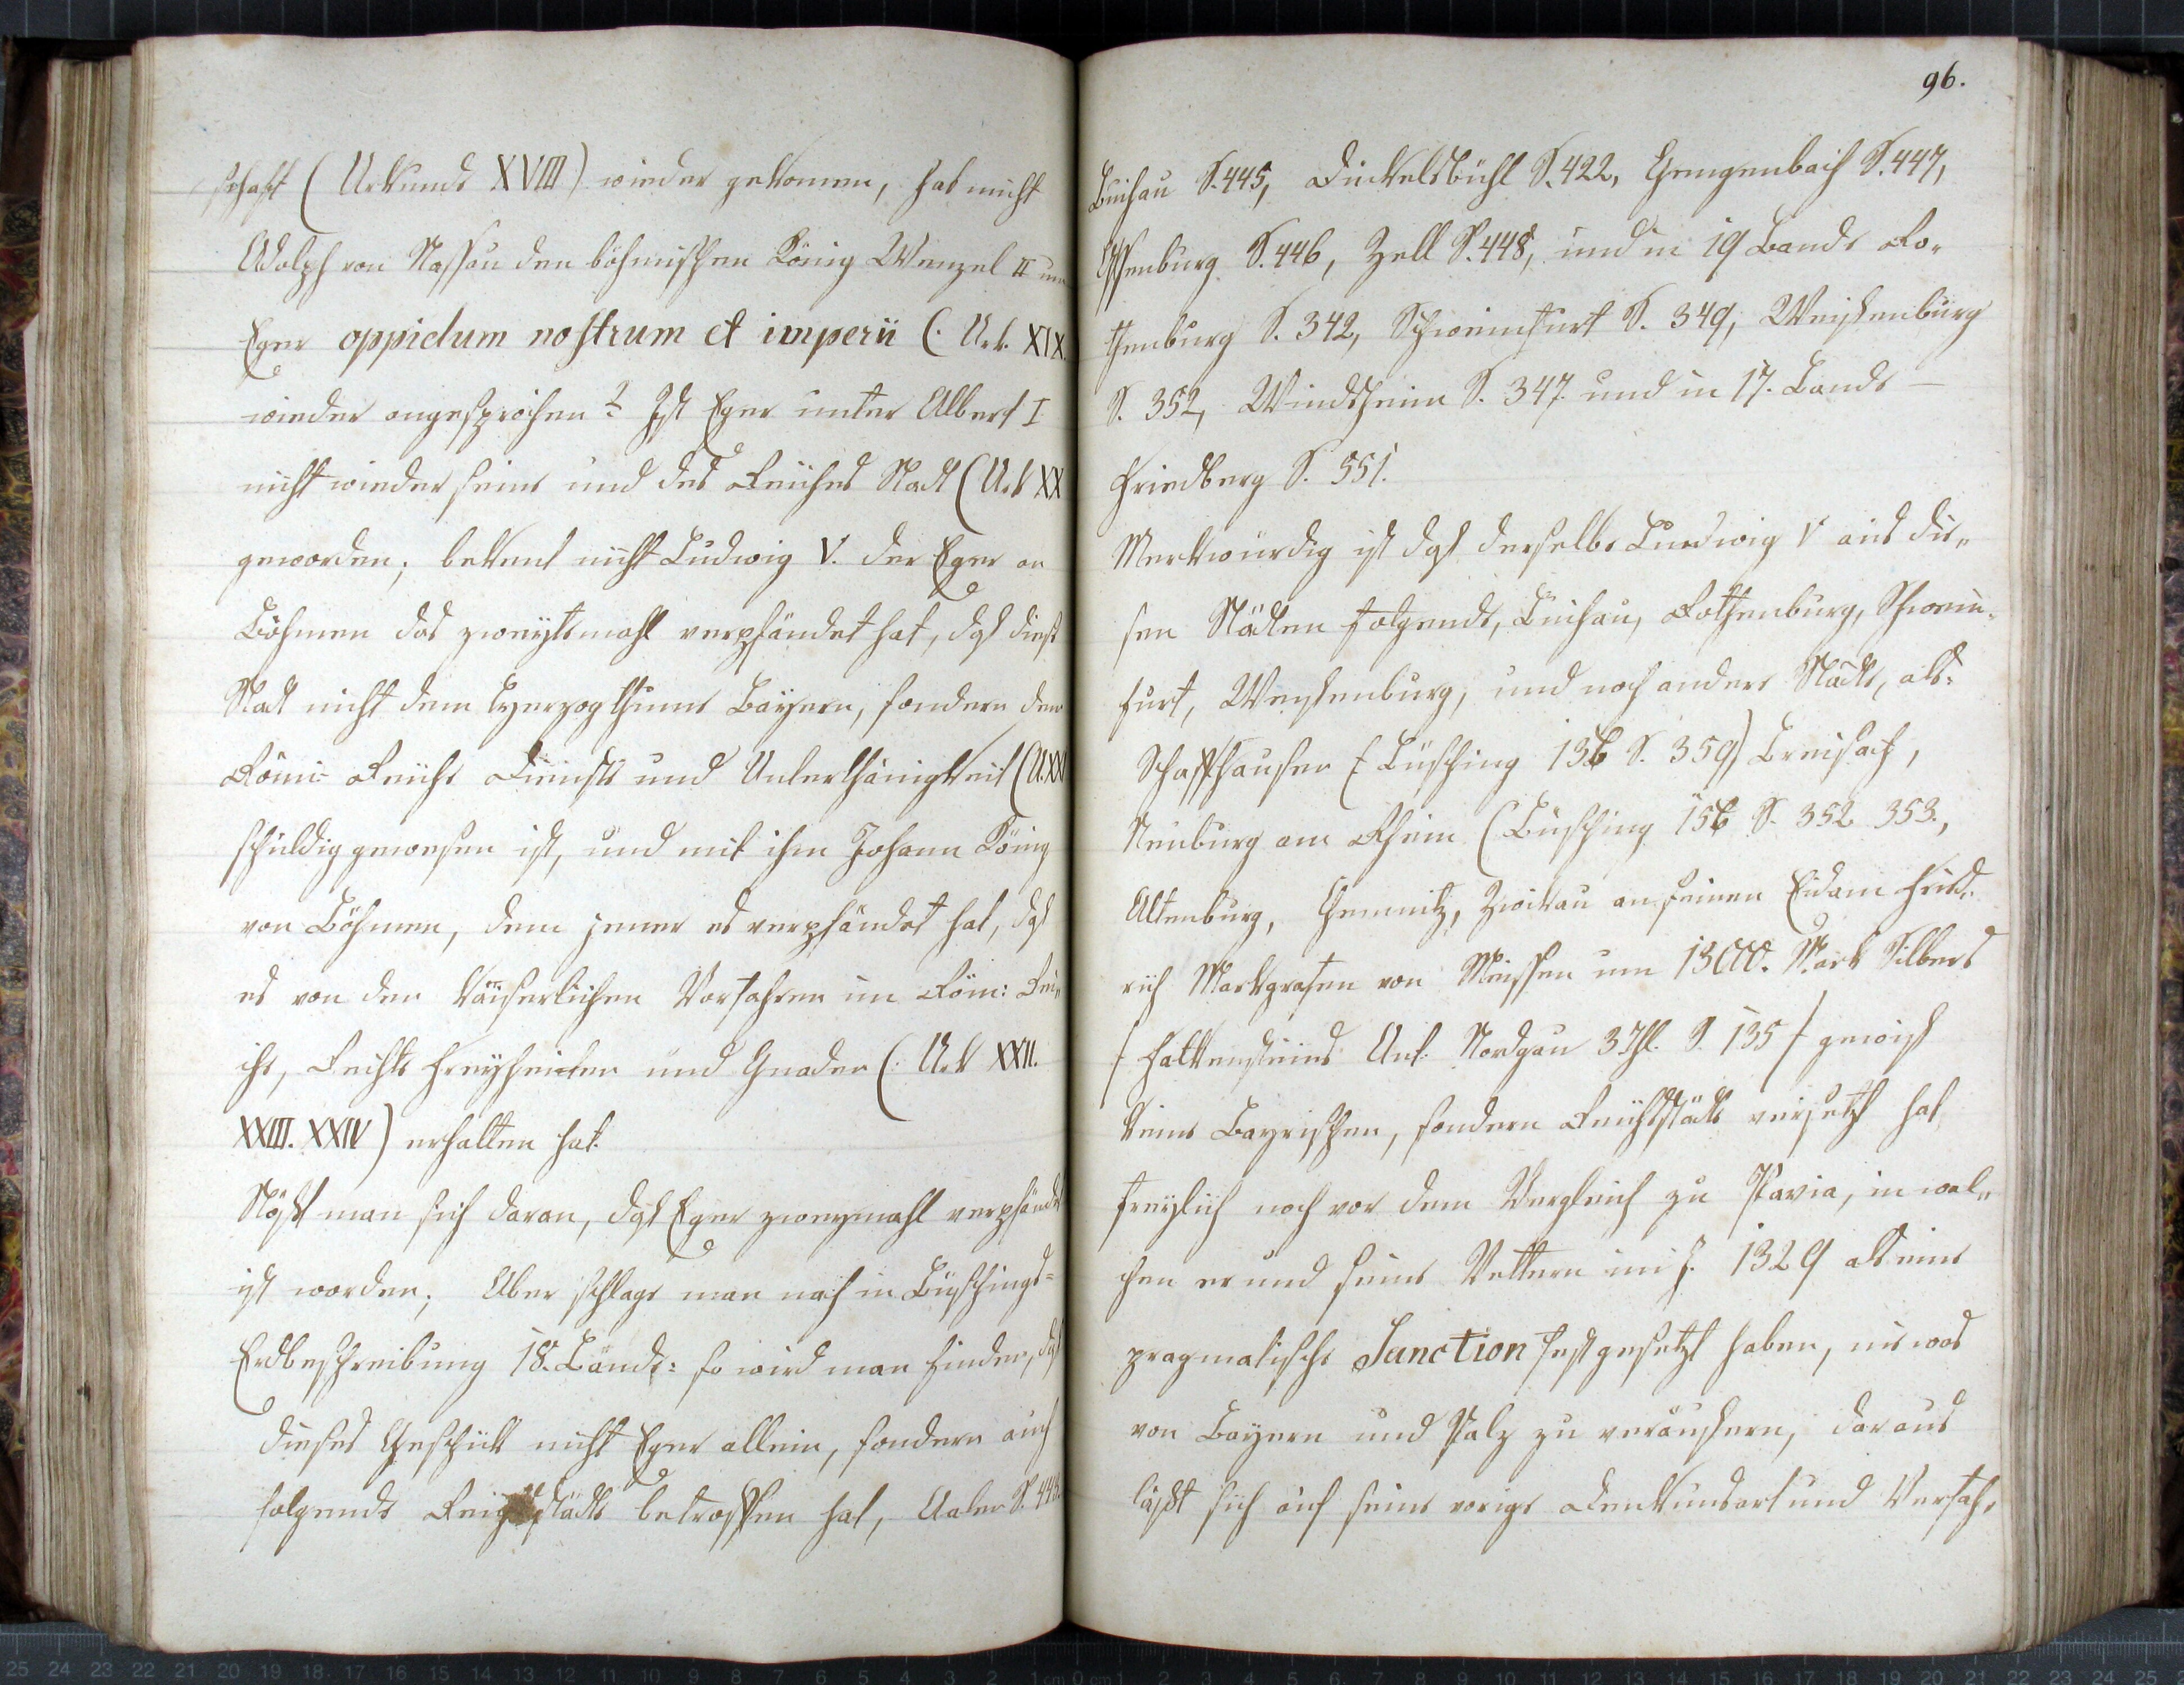 schaft (Urkunde XVIII) wieder gekomen, hat nicht
Adolph von Nassau den böhmischen König Wenzel II um
Eger oppidum nostrum et imperii (: Urk. XIX.
wieder angesprochen? Ist Eger unter Albert I
nicht wieder seine und des Reiches Stadt (Urk XX
geworden; bekent nicht Ludwig V. der Eger an
Böhmen das zweytemahl verpfändet hat, daß diese
Stadt nicht dem Herzogthume Bayern, sondern dem
Römi= Reiche Dienste und Unterthänigkeit (U. XXI
schuldig gewesen ist, und mit ihm Johann König
von Böhmen, dem jener es verpfändet hat, daß
es von den käiserlichen Vorfahren im Röm: Rei„
che, Rechte Freyheiten und Gnaden (: Urk XXII.
XXIII. XXIV) erhalten hat.
Stößt man sich daran, daß Eger zweymahl verpfändet
ist worden; Aber schlage man nach in Büschings=
Erdbeschreibung 18. Bande: so wird man finden, daß
dieses Geschick nicht Eger allein, sondern auch
folgende Reichsstädte betroffen hat, Aalen S. 443.
96.
Buchau S. 445, Dinkelsbühl S. 422, Gengenbach S. 447,
Offenburg S. 446, Zell S. 448, und in 19 Bande Ro„
thenburg S. 342, Schweinfurt S. 349, Weissenburg
S. 352, Windsheim S. 347. und in 17. Bande —
Friedberg S. 551.
Merkwürdig ist daß derselbe Ludwig V aus die„
sen Städten folgende, Buchau, Rothenburg, Schwein„
furt, Weissenburg, und noch andere Städte, als:
Schaffhausen (: Büsching 13b S. 359) Breisach,
Neuburg am Rhein (Büsching 15b S. 352 353.,
Altenburg, Chemnitz, Zwickau an seinen Eidam Fried„
rich Markgrafen von Meissen um 13000. Mark Silbers
/ Falkensteins Ant. Nordgau 3 Thl. S. 135 / gewiß
keine Bayrischen, sondern Reichsstädte versetzt hat
freylich noch vor dem Vergleich zu Pavia, in wel„
chen er und seine Vettern im J. 1329 als eine
pragmatische Sanction festgesetzt haben, nie was
von Bayern und Pfalz zu veräussern, daraus
läßt sich auf seine vorige Denkungsart und Verfah„